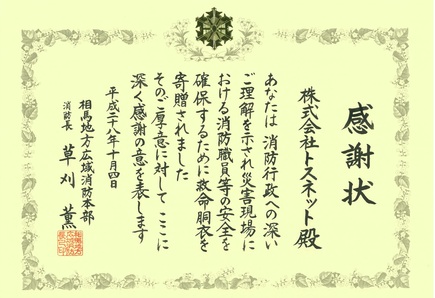 感謝状
株式会社トスネット殿
あなたは 消防行政への深い
ご理解を示され災害現場に
おける消防職員等の安全を
確保するために救命胴衣を
寄贈されました
そのご厚意に対して ここに
深く感謝の意を表します
平成二十八年十月四日
相馬地方広域消防本部
消防長 草刈 薫